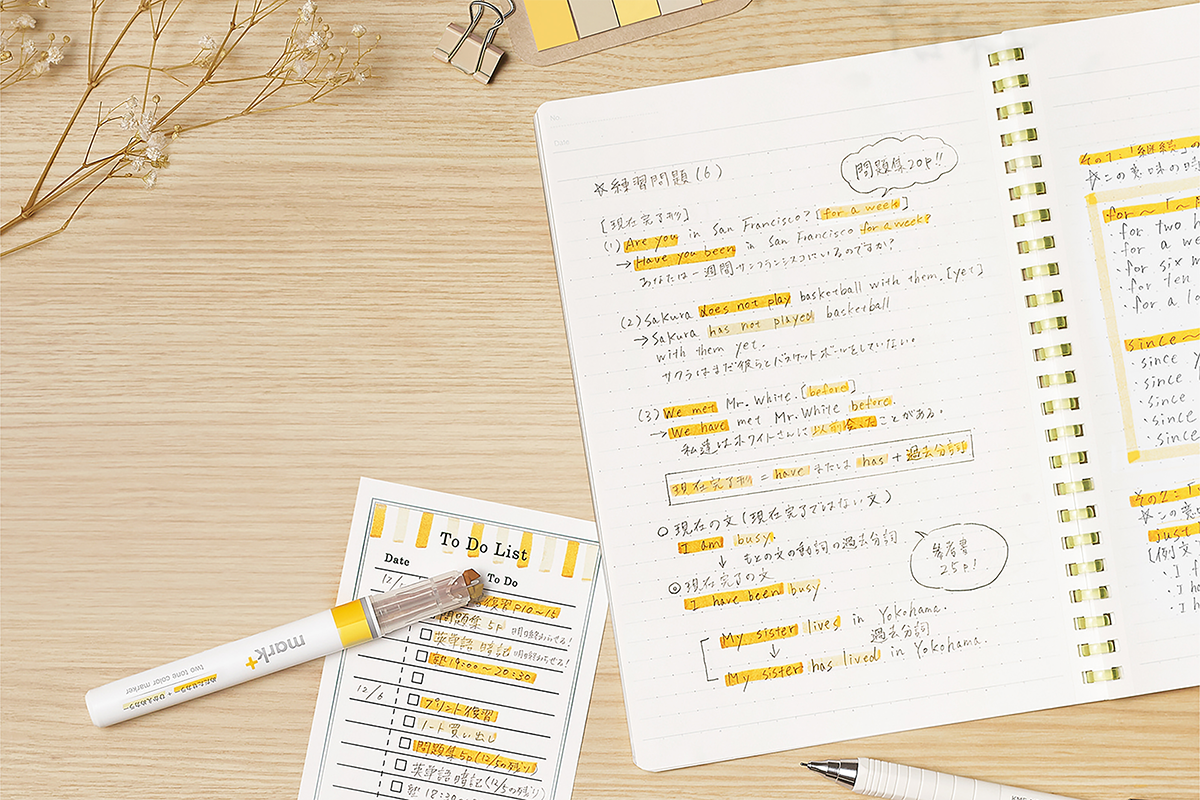 No.
Date
☆練習問題(6)
問題集20p!!
[現在完了形]
(1) Are you in San Francisco? [for a week]
→Have you been in San Francisco for a week?
あなたは一週間サンフランシスコにいるのですか?
(2) Sakura does not play basketball with them. [yet]
→Sakura has not played basketball
with them yet.
サクラはまだ彼らとバスケットボールをしていない。
(3) We met Mr. White. [before]
→We have met Mr. White before.
私達はホワイトさんに以前会ったことがある。
現在完了形 = have または has + 過去分詞
○現在の文(現在完了ではない文)
I am busy.
↓ もとの文の動詞の過去分詞
◎現在完了の文
I have been busy.
参考書
25p!
My sister lives in Yokohama.
↓ 過去分詞
My sister has lived in Yokohama.
その1:「継続」の
☆この意味の時
for~「~
for two
for a we
・for six m
・for ten
・for a lo
since~
・since
・since
・since
・since
その2:「
☆この意
just
[例文
・I
I ha
・I h
To Do List
Date
To Do
12/
復習 P10~15
問題集 5p 明日終わらせる!
英単語 暗記 明日終わらせる!
塾 19:00~20:30
12/6
プリント復習
ノート買い出し
問題集5p(12/5の残り)
英単語暗記(12/5の残り)
塾 18:30
mark+
two tone color marker
めだたせカラー + ひかえめカラー